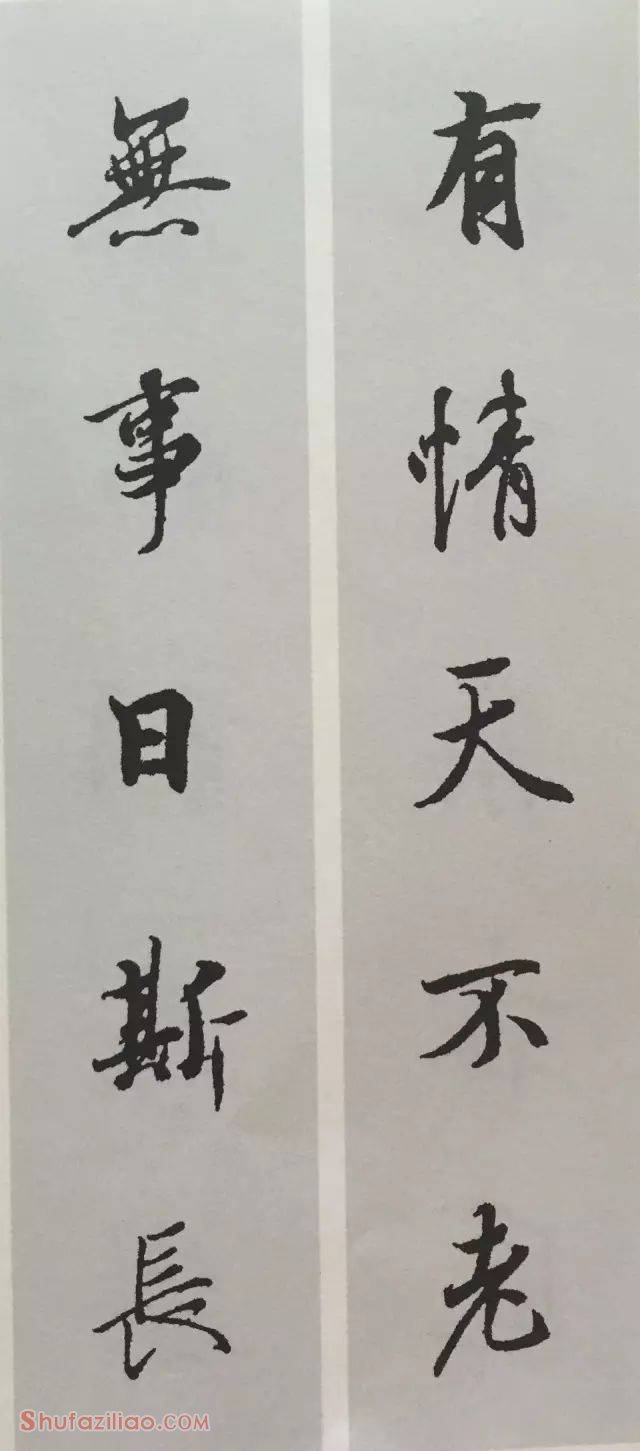 有情天不老
無事日斯長
Shufaziliao.COM